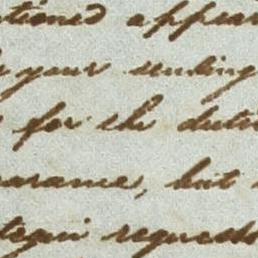 tioned appear
your sending
for the duti
arance, but
requests